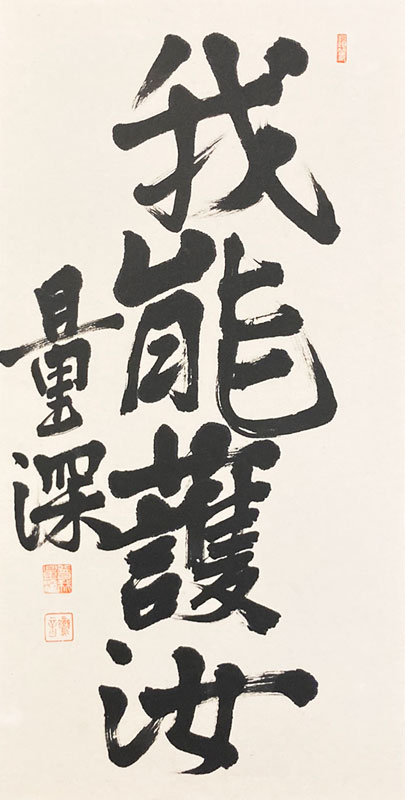 我能護汝
量深